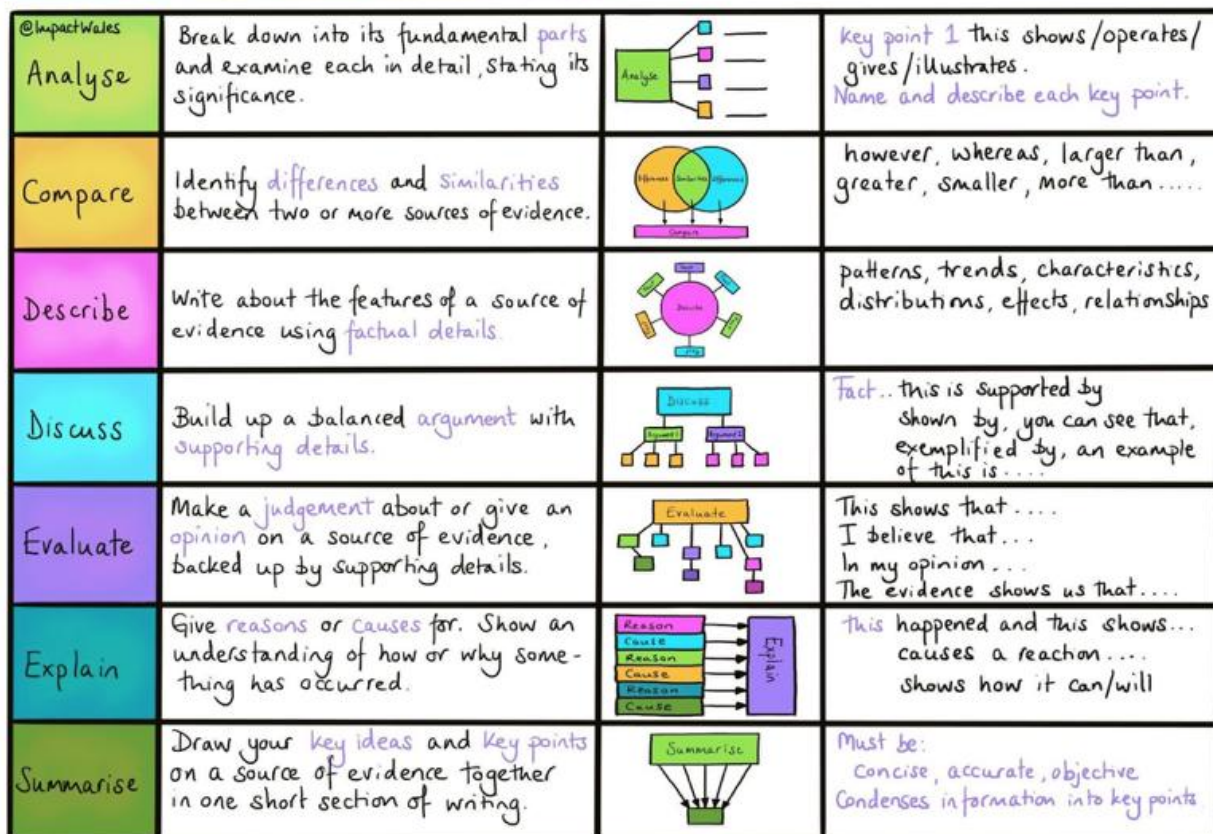 @ImpactWales
Analyse
Break down into its fundamental parts
and examine each in detail, stating its
significance.
Analyse
key point 1 this shows/operates/
gives/illustrates.
Name and describe each key point.
Compare
Identify differences and similarities
between two or more sources of evidence.
Differences
Similarities
Differences
Compare
however, whereas, larger than,
greater, smaller, more than.....
Describe
Write about the features of a source of
evidence using factual details.
Describe
patterns, trends, characteristics,
distributions, effects, relationships
Discuss
Build up a balanced argument with
supporting details.
Discuss
Argument 1
Argument 2
Fact.. this is supported by
shown by, you can see that,
exemplified by, an example
of this is....
Evaluate
Make a judgement about or give an
opinion on a source of evidence,
backed up by supporting details.
Evaluate
This shows that....
I believe that...
In my opinion...
The evidence shows us that....
Explain
Give reasons or causes for. Show an
understanding of how or why some-
thing has occurred.
Reason
Cause
Reason
Cause
Reason
Cause
Explain
this happened and this shows...
causes a reaction....
shows how it can/will
Summarise
Draw your key ideas and key points
on a source of evidence together
in one short section of writing.
Summarise
Must be:
Concise, accurate, objective
Condenses information into key points